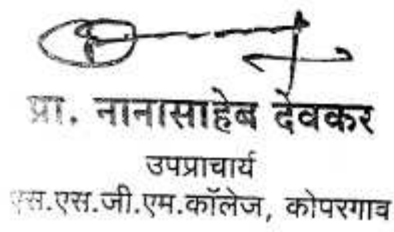 प्रा. नानासाहेब देवकर
उपप्राचार्य
एस.एस.जी.एम.कॉलेज, कोपरगाव